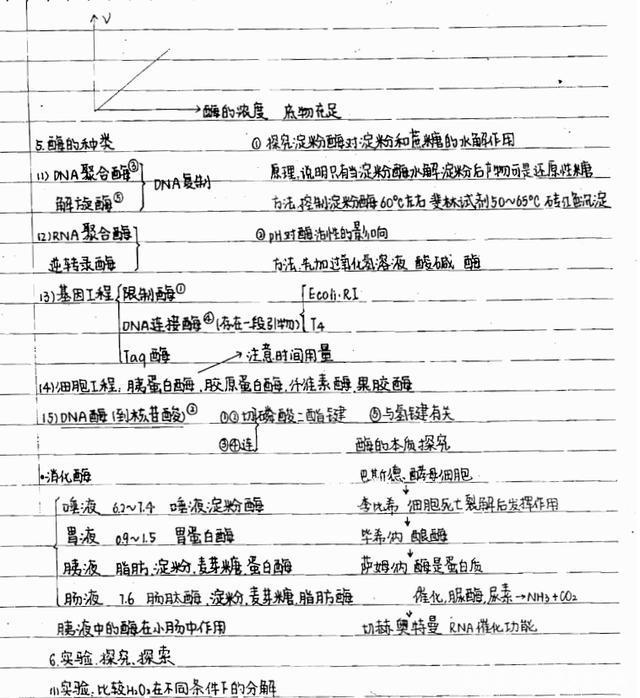 V
酶的浓度 底物充足
5.酶的种类
① 探究淀粉酶对淀粉和蔗糖的水解作用
(1) DNA聚合酶③
解旋酶⑤
DNA复制
原理,说明只有当淀粉酶水解淀粉后产物可是还原性糖
方法,控制淀粉酶60℃左右 斐林试剂50~65℃ 砖红色沉淀
(2)RNA聚合酶
逆转录酶
②pH对酶活性的影响
方法,先加过氧化氢溶液 酸碱 酶
(3)基因工程
限制酶①
DNA连接酶④(存在一段引物)
EcoLi·RI
T4
Taq酶
注意时间用量
(4)细胞工程, 胰蛋白酶,胶原蛋白酶,纤维素酶,果胶酶
(5)DNA酶(到核苷酸)②
①②切磷酸二酯键 ⑤与氢键有关
③④连
酶的本质探究
•消化酶
巴斯德,酵母细胞
唾液 6.2~7.4 唾液淀粉酶
李比希 细胞死亡裂解后发挥作用
胃液 0.9~1.5 胃蛋白酶
毕希纳 酿酶
胰液 脂肪,淀粉,麦芽糖,蛋白酶
萨姆纳 酶是蛋白质
肠液 7.6 肠肽酶,淀粉,麦芽糖,脂肪酶
催化,脲酶,尿素→NH3+CO2
胰液中的酶在小肠中作用
切赫,奥特曼 RNA催化功能
6.实验,探究,探索
(1)实验,比较H2O2在不同条件下的分解